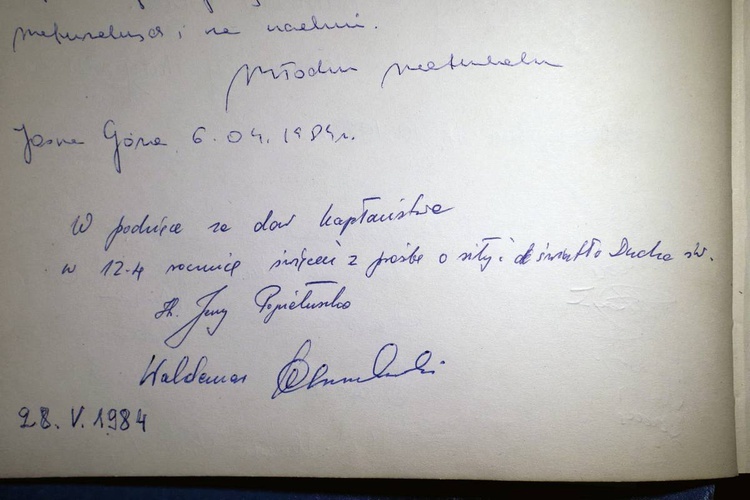 i na uczelni.
Młodzi maturzyści
Jasna Góra 6.04.1984r.
W podzięce za dar kapłaństwa
w 12-ą rocznicę święceń z prośbą o siły i światło Ducha św.
Ks. Jerzy Popiełuszko
Waldemar
28.V.1984